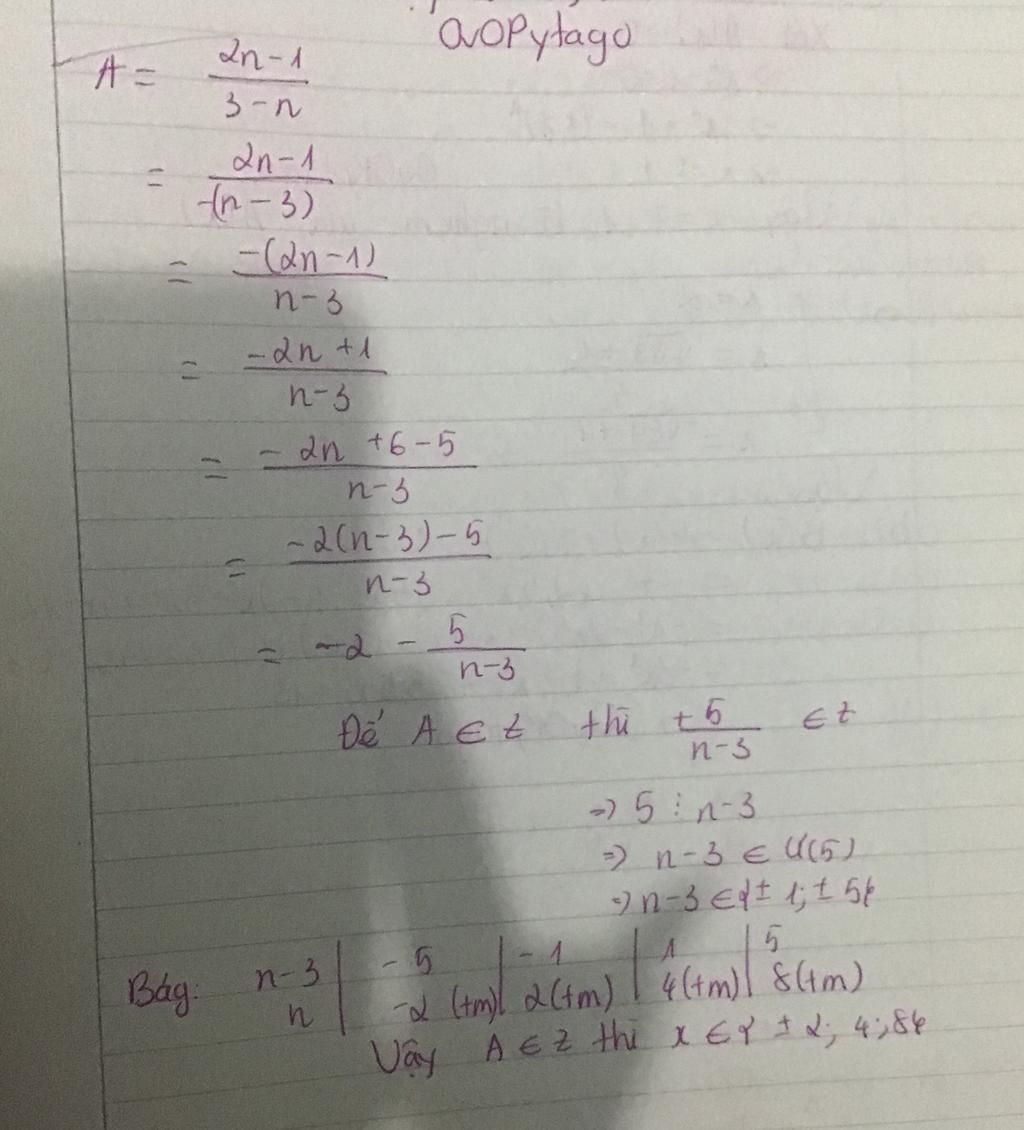 OOPytago
A = 2n-1 / 3-n
= 2n-1 / -(n-3)
= -(2n-1) / n-3
= -2n+1 / n-3
= -2n+6-5 / n-3
= -2(n-3)-5 / n-3
= -2 - 5 / n-3
Để A ∈ Z thì +5 / n-3 ∈ Z
=> 5 ⋮ n-3
=> n-3 ∈ Ư(5)
=> n-3 ∈ {±1; ±5}
Bảg: n-3 | -5 | -1 | 1 | 5
n | -2 (tm) | 2(tm) | 4(tm) | 8(tm)
Vậy A ∈ Z thì x ∈ {±2; 4; 8}